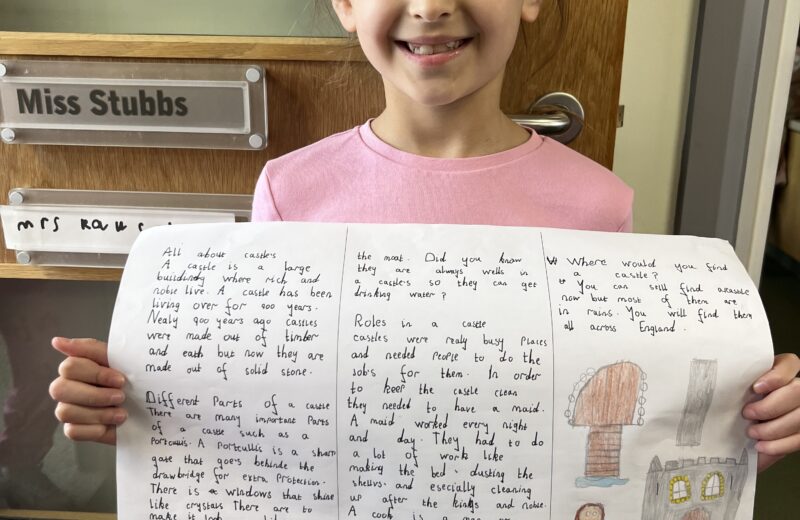 Miss Stubbs
mrs
All about castles
A castle is a large
building where rich and
noble live. A castle has been
living over for 900 years.
Nealy 900 years ago castles
were made out of timber
and eath but now they are
made out of solid stone.
Different Parts of a castle
There are many important Parts
of a castle such as a
Portcullis. A Portcullis is a sharp
gate that goes behinde the
drawbridge for extra Protection.
There is windows that shine
like crystals There are to
make it look
the moat. Did you know
they are always wells in
a castle's so they can get
drinking water?
Roles in a castle
castles were realy busy Places
and needed People to do the
Job's for them. In order
to keep the castle clean
they needed to have a maid.
A maid worked every night
and day. They had to do
a lot of work like
making the bed, dusting the
shelvs and esecially cleaning
up after the kings and noble.
A cook is a
Where would you find
a castle?
You can still find
now but most of them are
in ruins. You will find them
all across England.